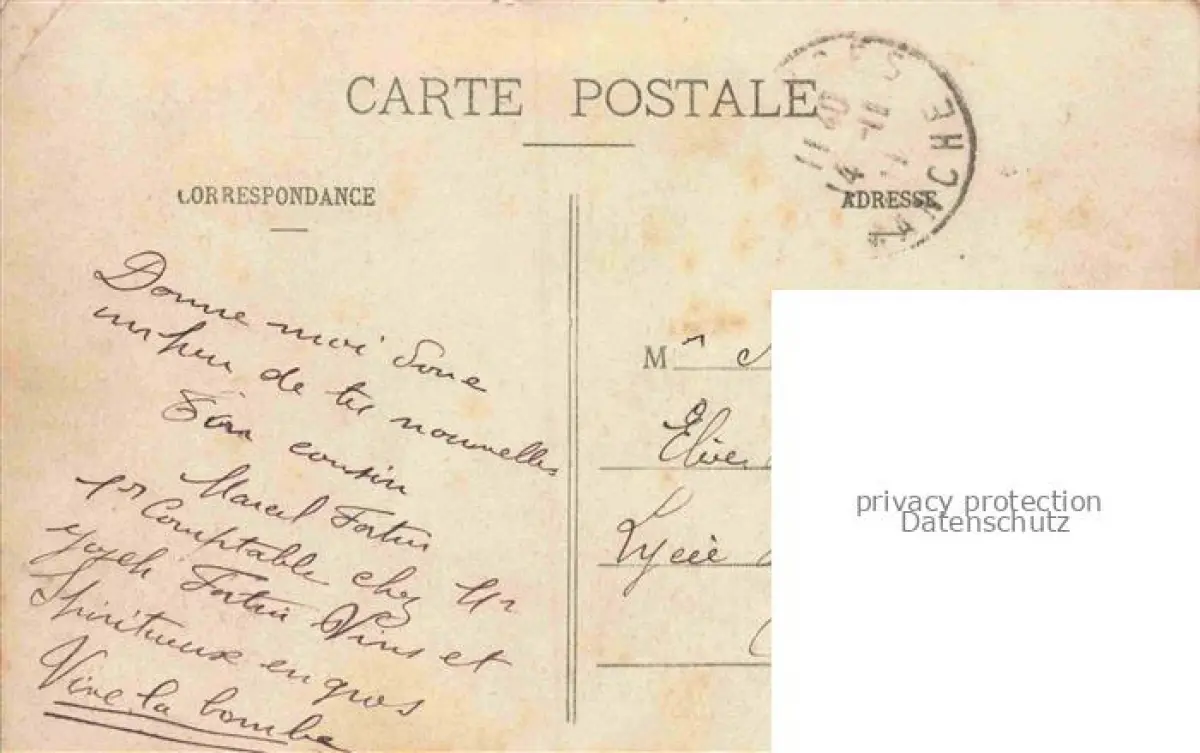 CARTE POSTALE
CORRESPONDANCE
ADRESSE
11 40
14 -11
MANCHE
Donne moi donc
un peu de tes nouvelles
Ton cousin
Marcel Fortin
1er Comptable chez Mr
Joseph Fortin Vins et
Spiritueux en gros
Vive la bombe
Mr
Elève
Lycée
privacy protection
Datenschutz